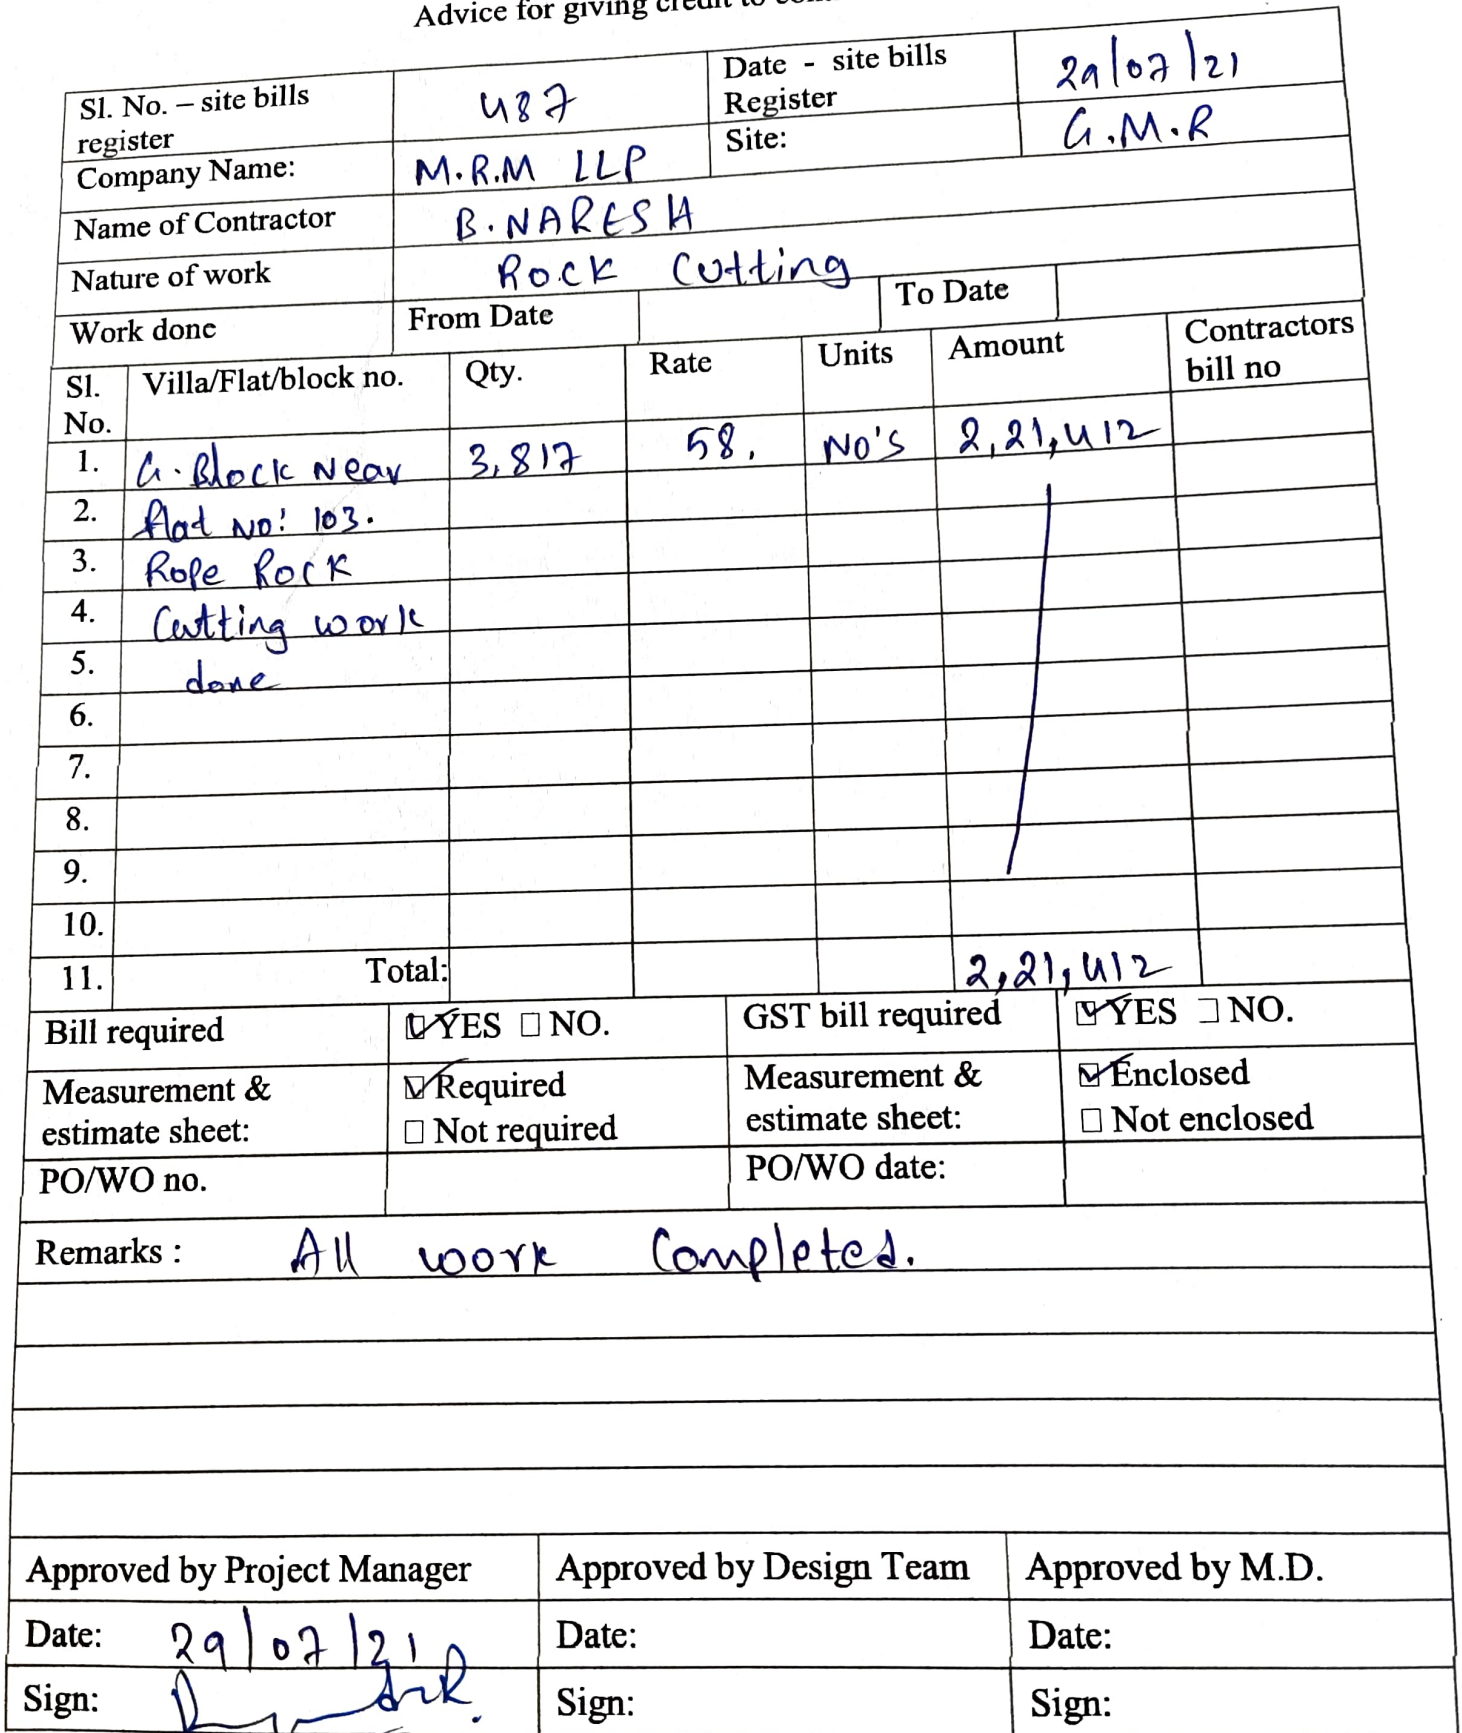 Advice for giving credit to
Sl. No. – site bills register 487 Date - site bills Register 29/07/21
Company Name: M.R.M LLP Site: G.M.R
Name of Contractor B.NARESH
Nature of work Rock Cutting
Work done From Date To Date
Sl. No. Villa/Flat/block no. Qty. Rate Units Amount Contractors bill no
1. G.Block Near 3,817 58. NO'S 2,21,412
2. flat NO: 103.
3. Rope Rock
4. Cutting work
5. done
6.
7.
8.
9.
10.
11. Total: 2,21,412
Bill required ☑ YES □ NO. GST bill required ☑ YES □ NO.
Measurement & estimate sheet: ☑ Required □ Not required Measurement & estimate sheet: ☑ Enclosed □ Not enclosed
PO/WO no. PO/WO date:
Remarks : All work Completed.
Approved by Project Manager Approved by Design Team Approved by M.D.
Date: 29/07/21 Date: Date:
Sign: Sign: Sign: